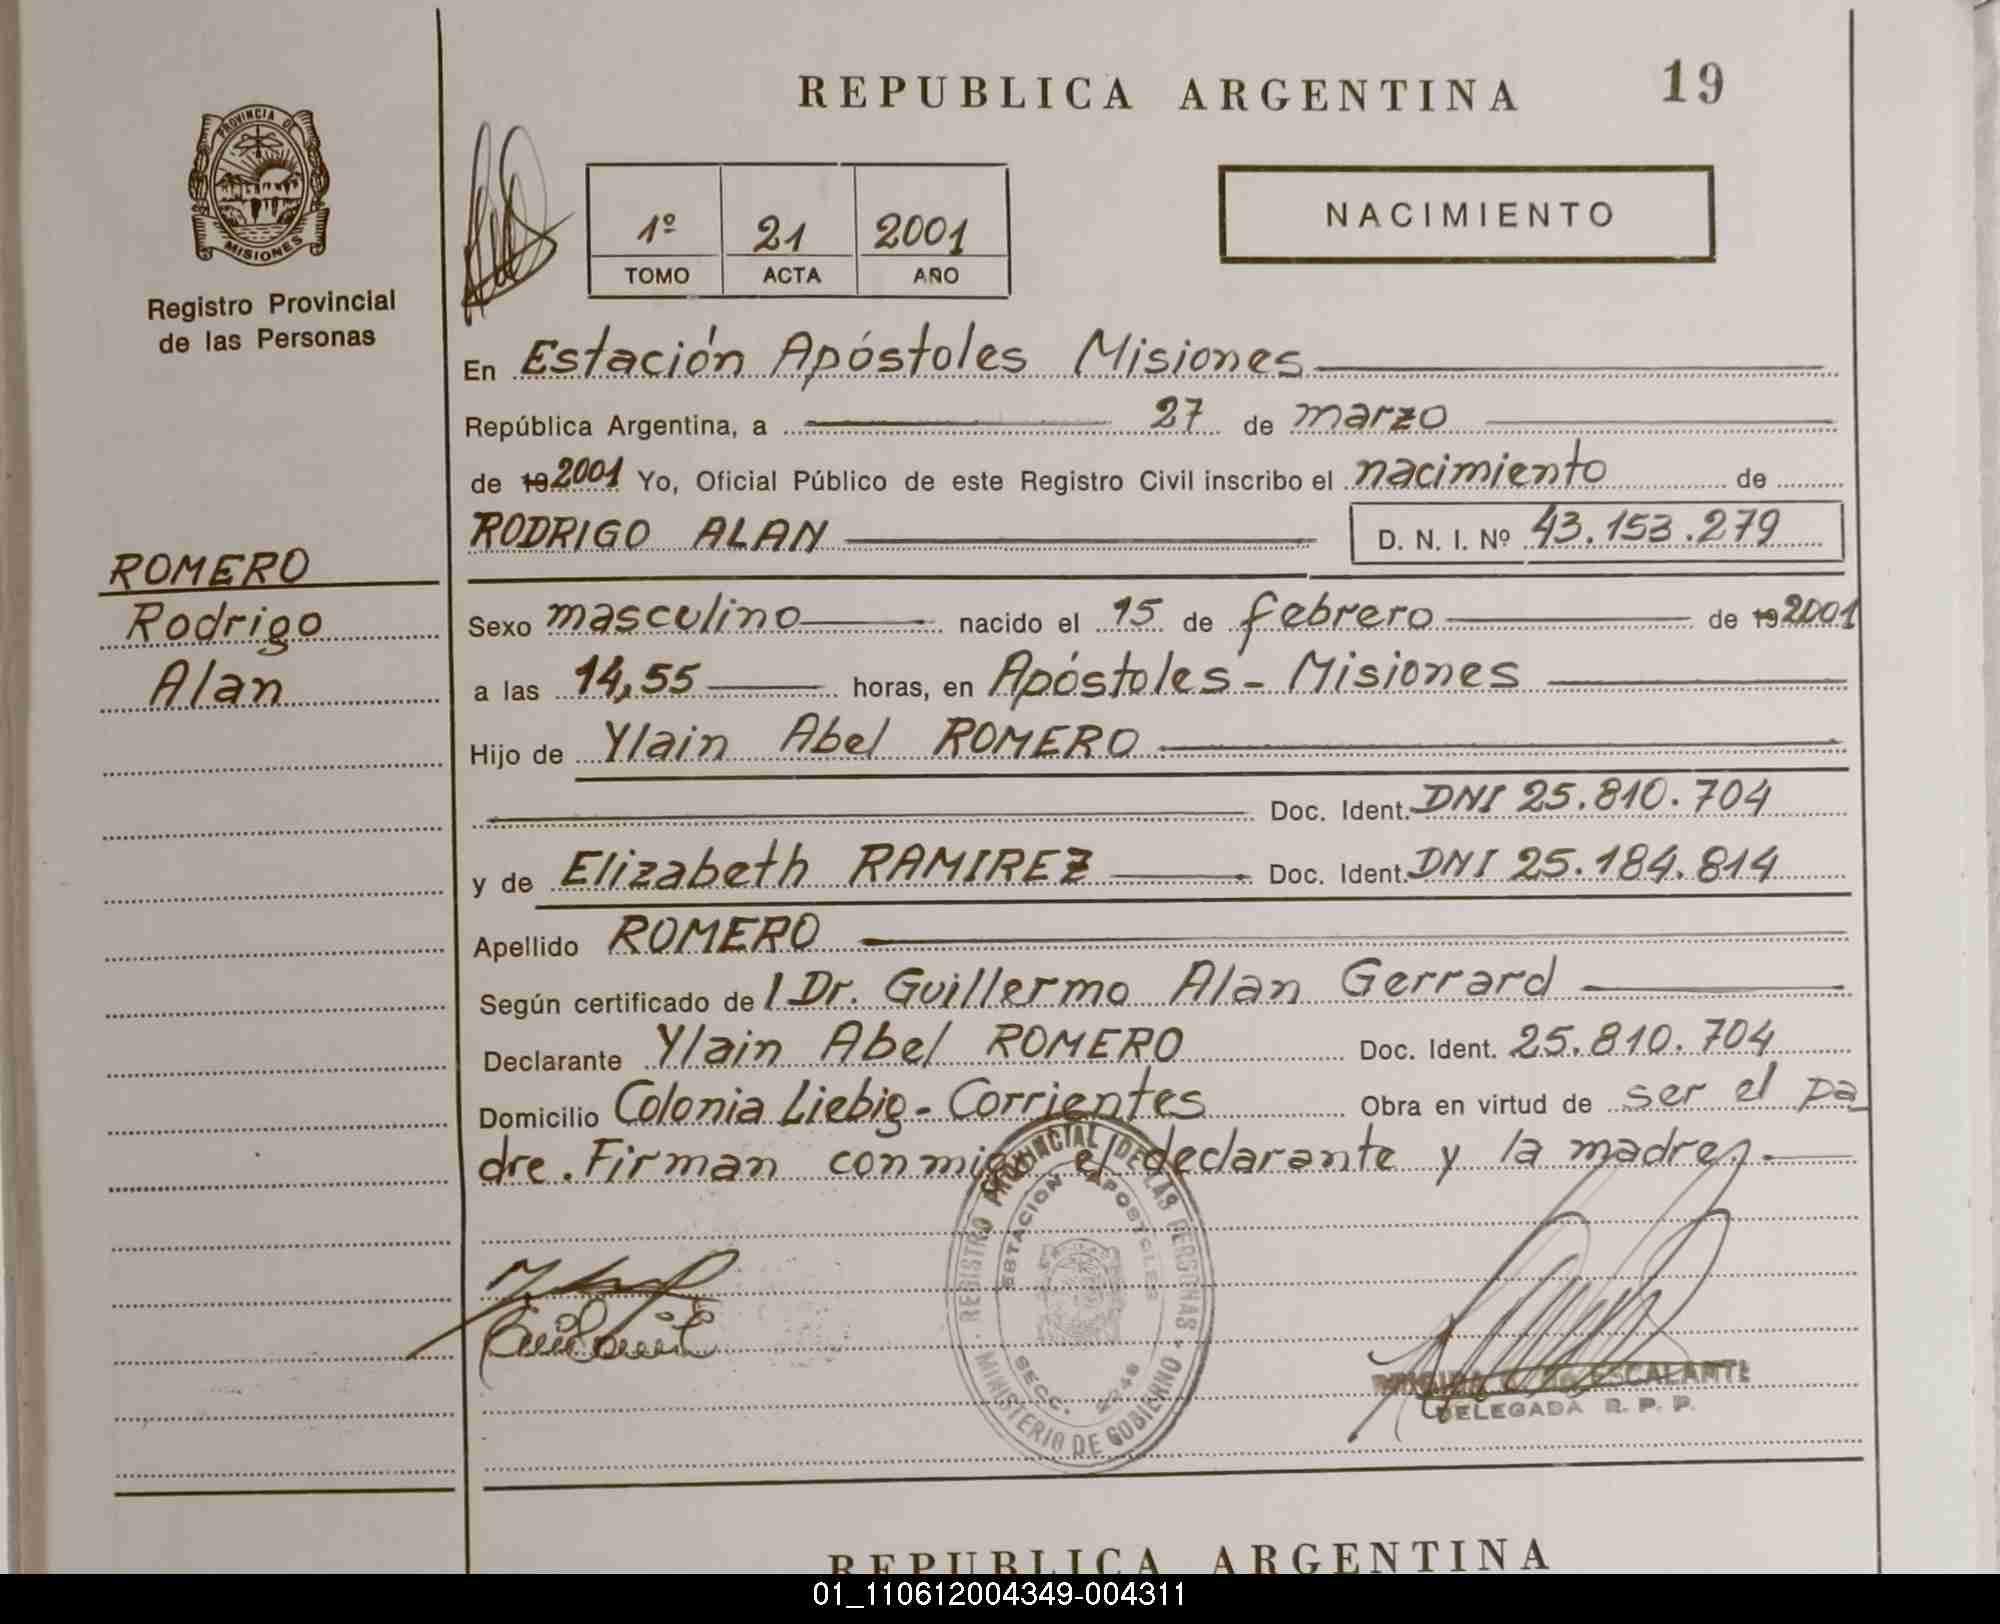 REPUBLICA ARGENTINA
19
PROVINCIA DE
MISIONES
Registro Provincial
de las Personas
1º 21 2001
TOMO ACTA AÑO
NACIMIENTO
En Estación Apóstoles Misiones
República Argentina, a 27 de marzo
de 19 2001 Yo, Oficial Público de este Registro Civil inscribo el nacimiento de
RODRIGO ALAN D. N. I. Nº 43.153.279
ROMERO
Rodrigo
Alan
Sexo masculino nacido el 15 de febrero de 19 2001
a las 14,55 horas, en Apóstoles - Misiones
Hijo de Ylain Abel ROMERO
Doc. Ident. DNI 25.810.704
y de Elizabeth RAMIREZ Doc. Ident. DNI 25.184.814
Apellido ROMERO
Según certificado de l Dr. Guillermo Alan Gerrard
Declarante Ylain Abel ROMERO Doc. Ident. 25.810.704
Domicilio Colonia Liebig - Corrientes Obra en virtud de ser el pa_
dre. Firman conmigo el declarante y la madre.-
REGISTRO PROVINCIAL DE LAS PERSONAS
ESTACION APOSTOLES
SECC.
MINISTERIO DE GOBIERNO
ESCALANTE
DELEGADA R. P. P.
REPUBLICA ARGENTINA
01_110612004349-004311